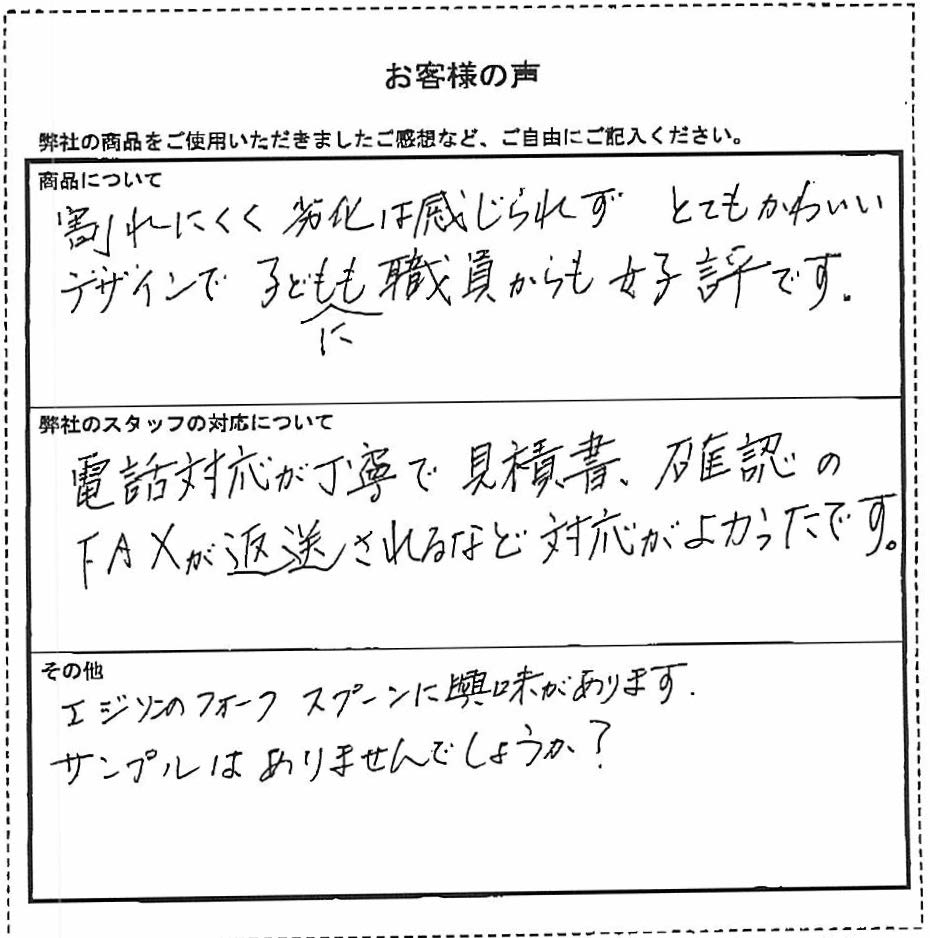 お客様の声
弊社の商品をご使用いただきましたご感想など、ご自由にご記入ください。
商品について
割れにくく 劣化は感じられず とてもかわいい
デザインで 子どもも 職員からも 好評です。
に
弊社のスタッフの対応について
電話対応が丁寧で 見積書、確認の
FAXが返送されるなど 対応がよかったです。
その他
エジソンのフォーク スプーンに興味があります.
サンプルは ありませんでしょうか?